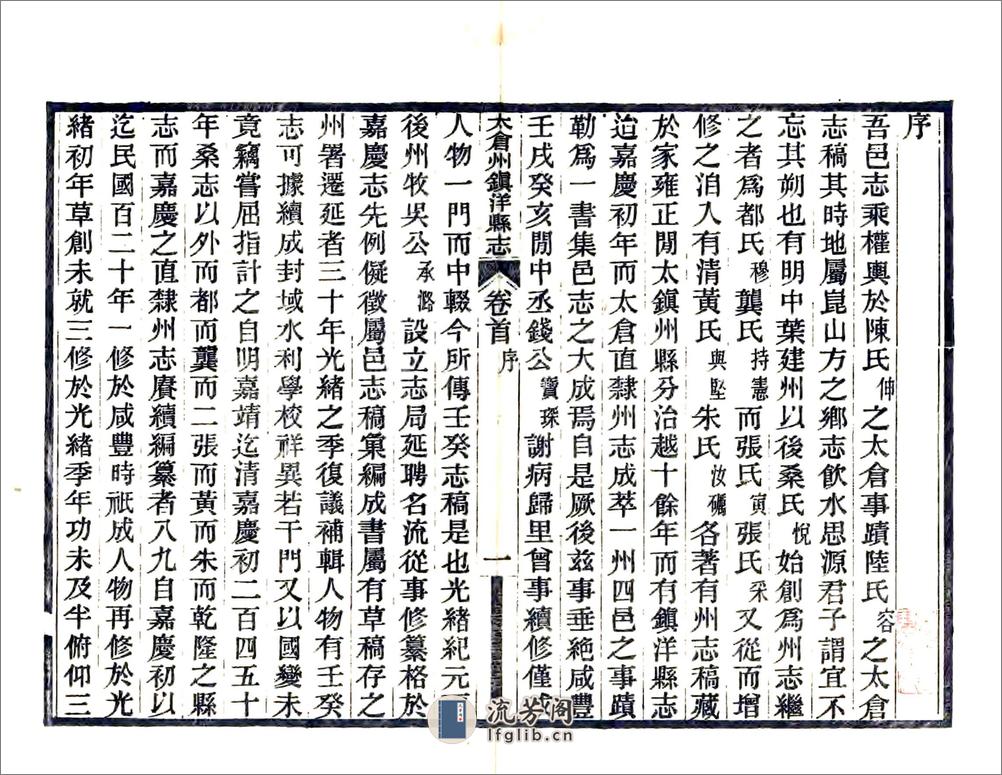 序
吾邑志乘權輿於陳氏伸之太倉事蹟陸氏容之太倉
志稿其時地屬崑山方之鄉志飲水思源君子謂宜不
忘其朔也有明中葉建州以後桑氏悅始創爲州志繼
之者爲都氏穆龔氏持憲而張氏寅張氏采又從而增
修之洎入有清黃氏與堅朱氏汝礪各著有州志稿藏
於家雍正閒太鎮州縣分治越十餘年而有鎮洋縣志
迨嘉慶初年而太倉直隸州志成萃一州四邑之事蹟
勒爲一書集邑志之大成焉自是厥後兹事垂絶咸豐
壬戌癸亥閒中丞錢公寶琛謝病歸里曾事續修僅成
太倉州鎮洋縣志 卷首 序 一
人物一門而中輟今所傳壬癸志稿是也光緒紀元
後州牧吳公承潞設立志局延聘名流從事修纂格於
嘉慶志先例儗徵屬邑志稿彙編成書屬有草稿存之
州署遷延者三十年光緒之季復議補輯人物有壬癸
志可據續成封域水利學校祥異若干門又以國變未
竟竊嘗屈指計之自明嘉靖迄清嘉慶初二百四五十
年桑志以外而都而龔而二張而黃而朱而乾隆之縣
志而嘉慶之直隸州志賡續編纂者八九自嘉慶初以
迄民國百二十年一修於咸豐時祇成人物再修於光
緒初年草創未就三修於光緒季年功未及半俯仰三
流芳阁
lfglib.cn